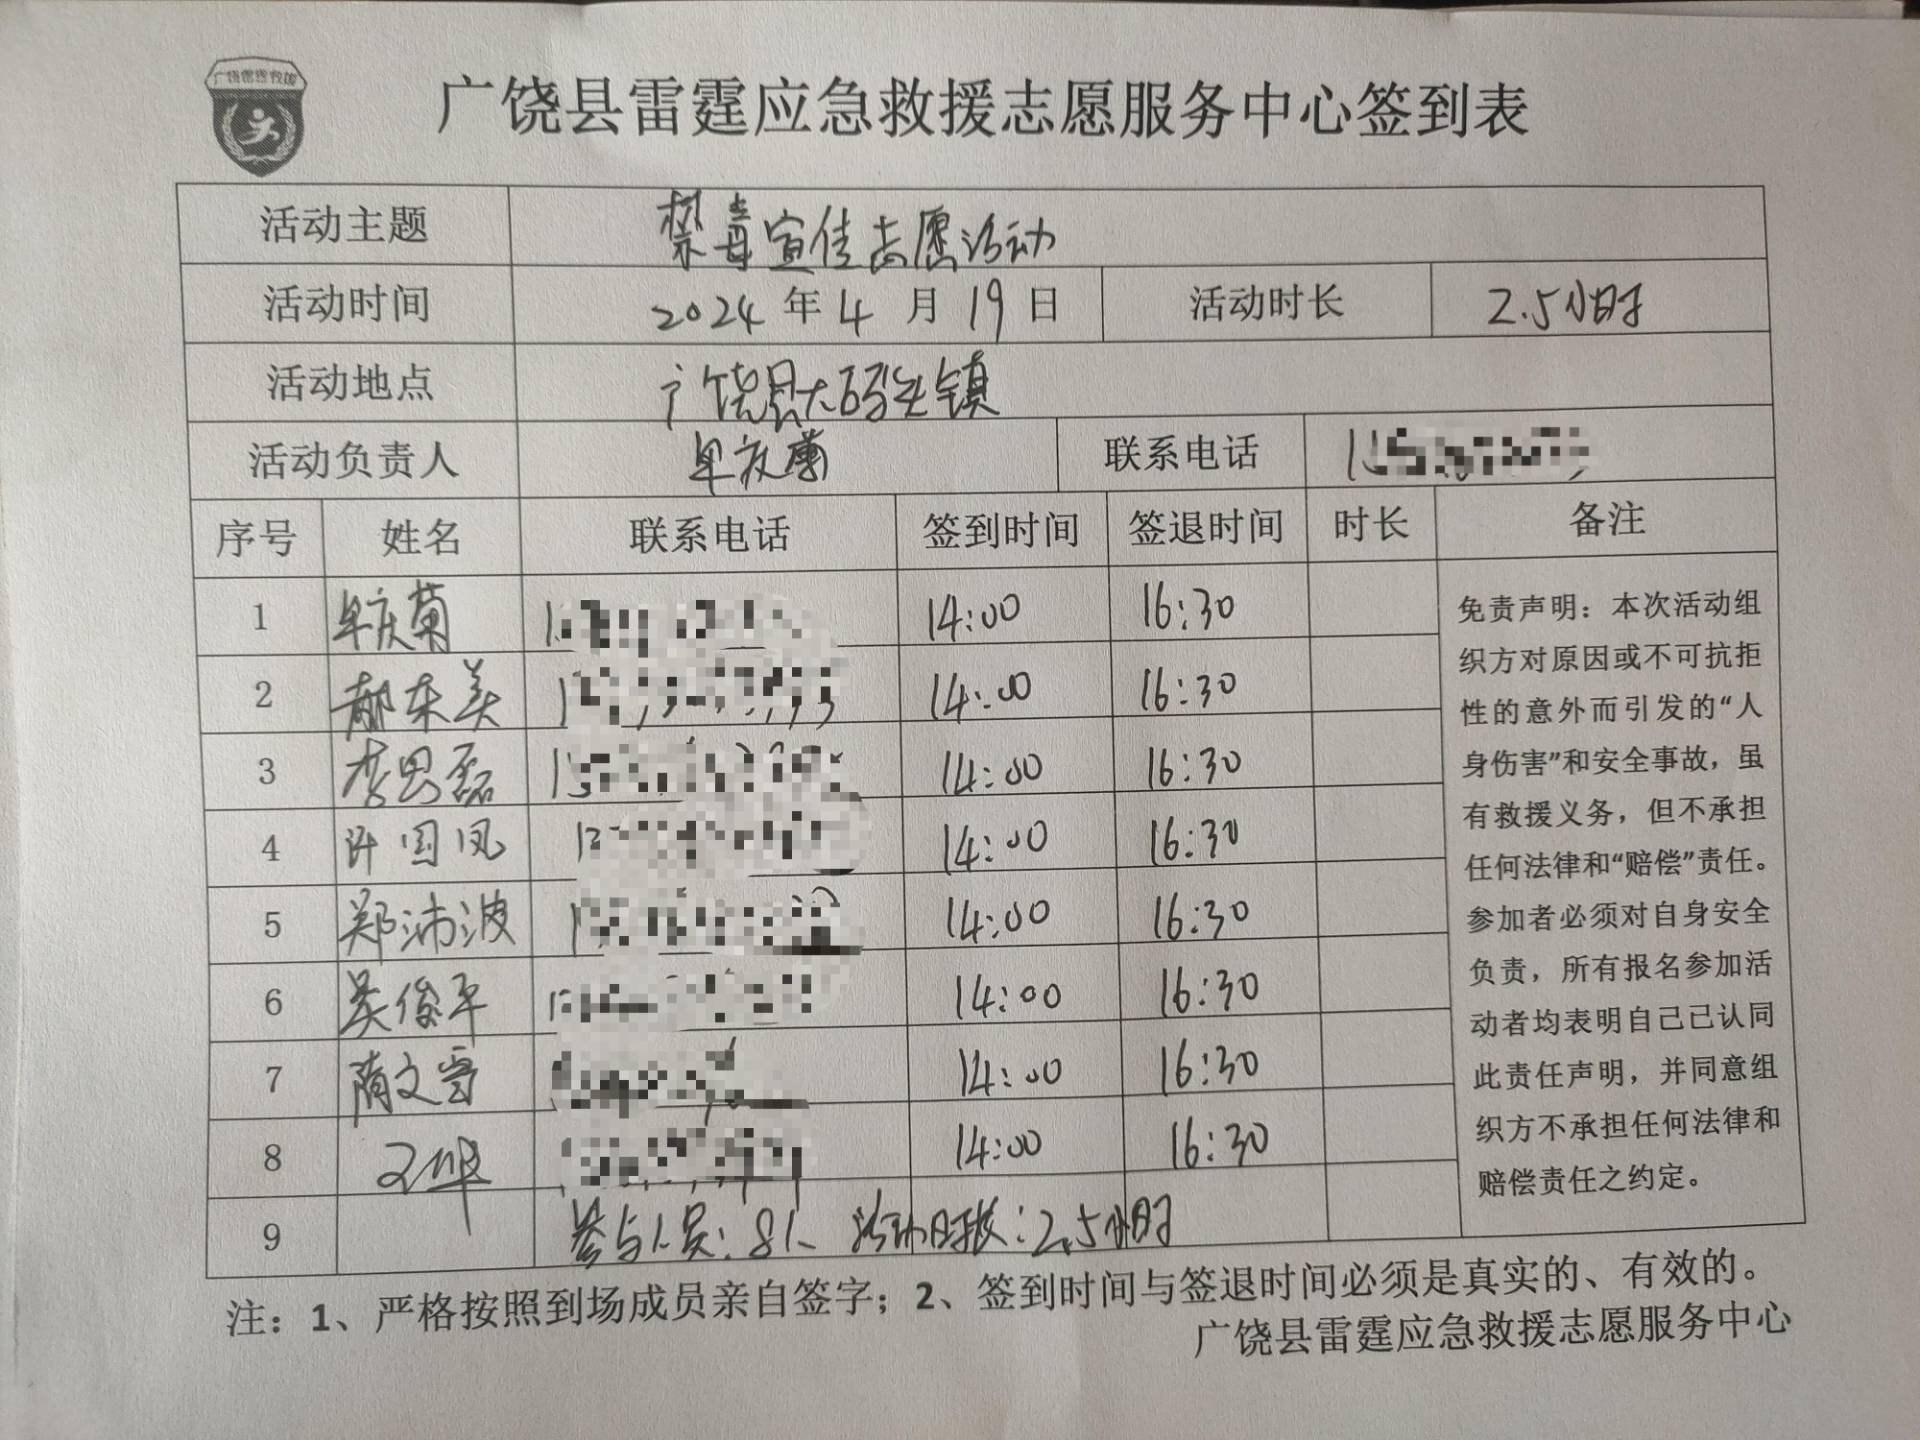 广饶雷霆救援
广饶县雷霆应急救援志愿服务中心签到表
活动主题 禁毒宣传志愿活动
活动时间 2024年4月19日 活动时长 2.5小时
活动地点 广饶县大码头镇
活动负责人 联系电话
序号 姓名 联系电话 签到时间 签退时间 时长 备注
1 14:00 16:30
2 14:00 16:30
3 李思磊 14:00 16:30
4 许国凤 14:00 16:30
5 郑沛波 14:00 16:30
6 吴俊平 14:00 16:30
7 隋文 14:00 16:30
8 14:00 16:30
9 参与人员:8人 活动时长:2.5小时
免责声明：本次活动组
织方对原因或不可抗拒
性的意外而引发的“人
身伤害”和安全事故，虽
有救援义务，但不承担
任何法律和“赔偿”责任。
参加者必须对自身安全
负责，所有报名参加活
动者均表明自己已认同
此责任声明，并同意组
织方不承担任何法律和
赔偿责任之约定。
注：1、严格按照到场成员亲自签字；2、签到时间与签退时间必须是真实的、有效的。
广饶县雷霆应急救援志愿服务中心